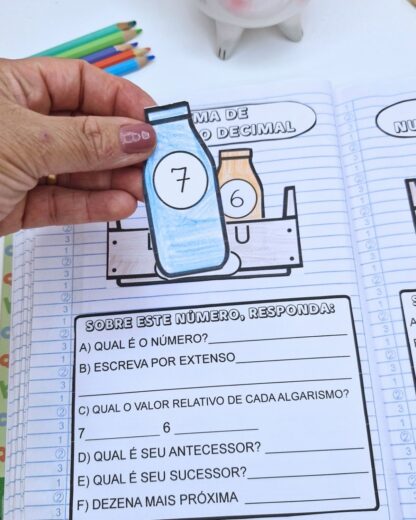 MA DE
O DECIMAL
NU
7
6
U
SOBRE ESTE NÚMERO, RESPONDA:
A) QUAL É O NÚMERO?
B) ESCREVA POR EXTENSO
C) QUAL O VALOR RELATIVO DE CADA ALGARISMO?
7 6
D) QUAL É SEU ANTECESSOR?
E) QUAL É SEU SUCESSOR?
F) DEZENA MAIS PRÓXIMA